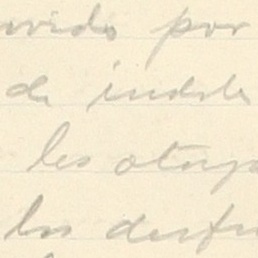 por
de indole
les otorg
los desfru